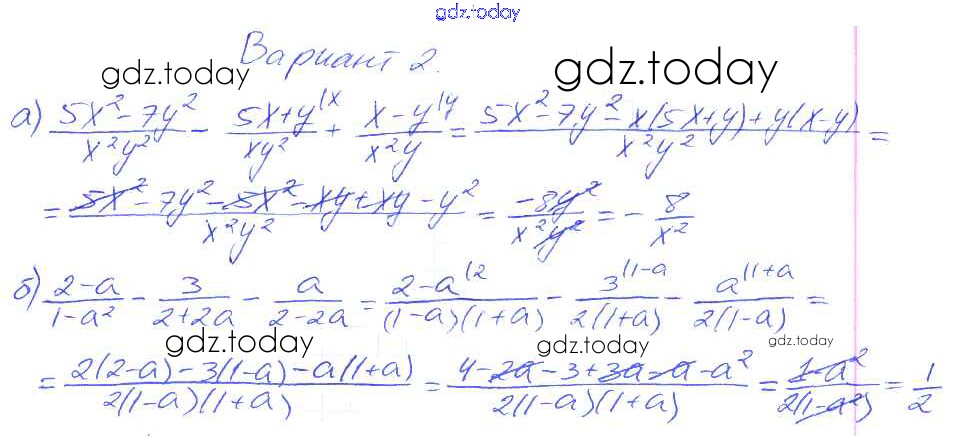 gdz.today
Вариант 2.
gdz.today gdz.today
а) (5x² - 7y²)/(x²y²) - (5x+y^{(x})/(xy²) + (x-y^{(y})/(x²y) = (5x² - 7y² - x(5x+y) + y(x-y))/(x²y²) =
= (5x² - 7y² - 5x² - xy + xy - y²)/(x²y²) = (-8y²)/(x²y²) = - 8/x²
б) (2-a)/(1-a²) - 3/(2+2a) - a/(2-2a) = (2-a^{(2})/((1-a)(1+a)) - 3^{(1-a}/(2(1+a)) - a^{(1+a}/(2(1-a)) =
gdz.today gdz.today gdz.today
= (2(2-a) - 3(1-a) - a(1+a))/(2(1-a)(1+a)) = (4 - 2a - 3 + 3a - a - a²)/(2(1-a)(1+a)) = (1-a²)/(2(1-a²)) = 1/2